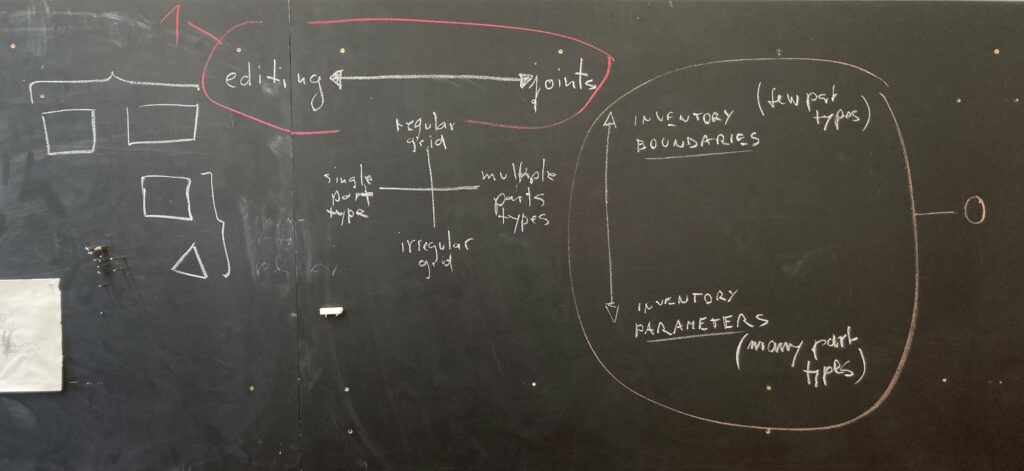 1
editing joints
regular
grid
single
part
type
multiple
parts
types
irregular
grid
INVENTORY
BOUNDARIES
(few part
types)
0
INVENTORY
PARAMETERS
(many part
types)